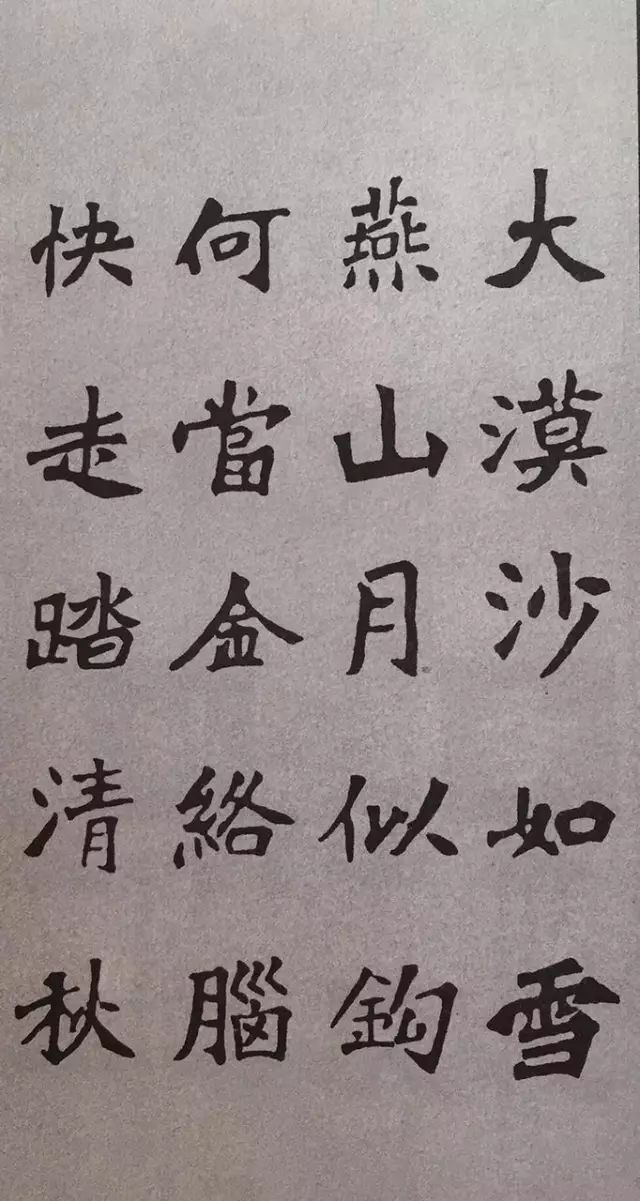 大漠沙如雪
燕山月似鈎
何當金絡腦
快走踏清秋